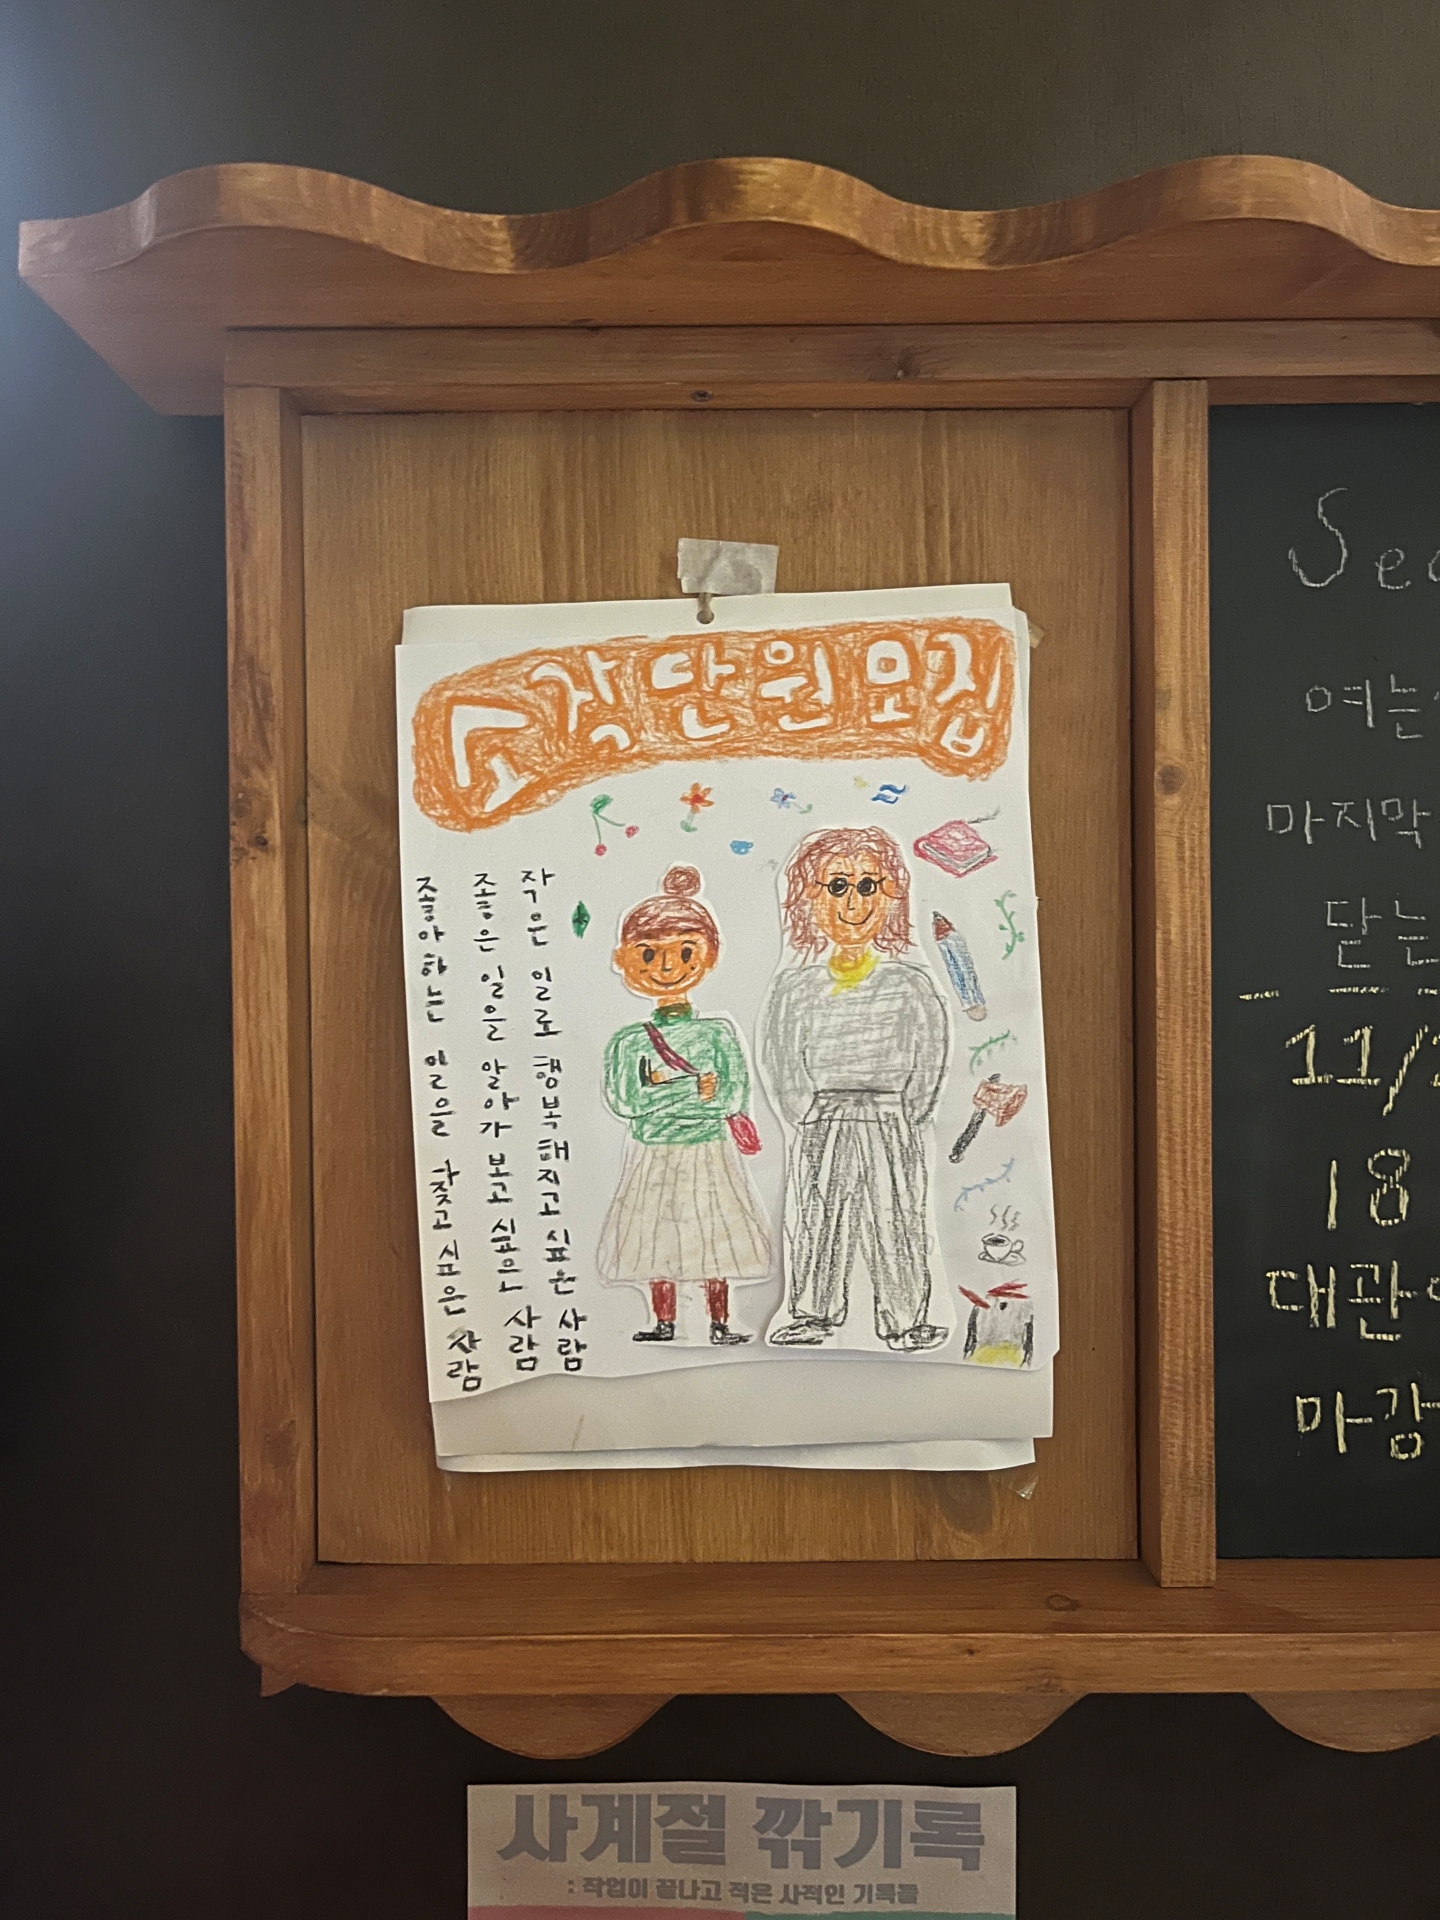 소작단원모집
작은 일로 행복해지고 싶은 사람
좋은 일을 알아가보고 싶은 사람
좋아하는 일을 찾고 싶은 사람
여는
마지막
닫는
11/
18
대관
마감
사계절 깎기록
: 작업이 끝나고 적은 사적인 기록들